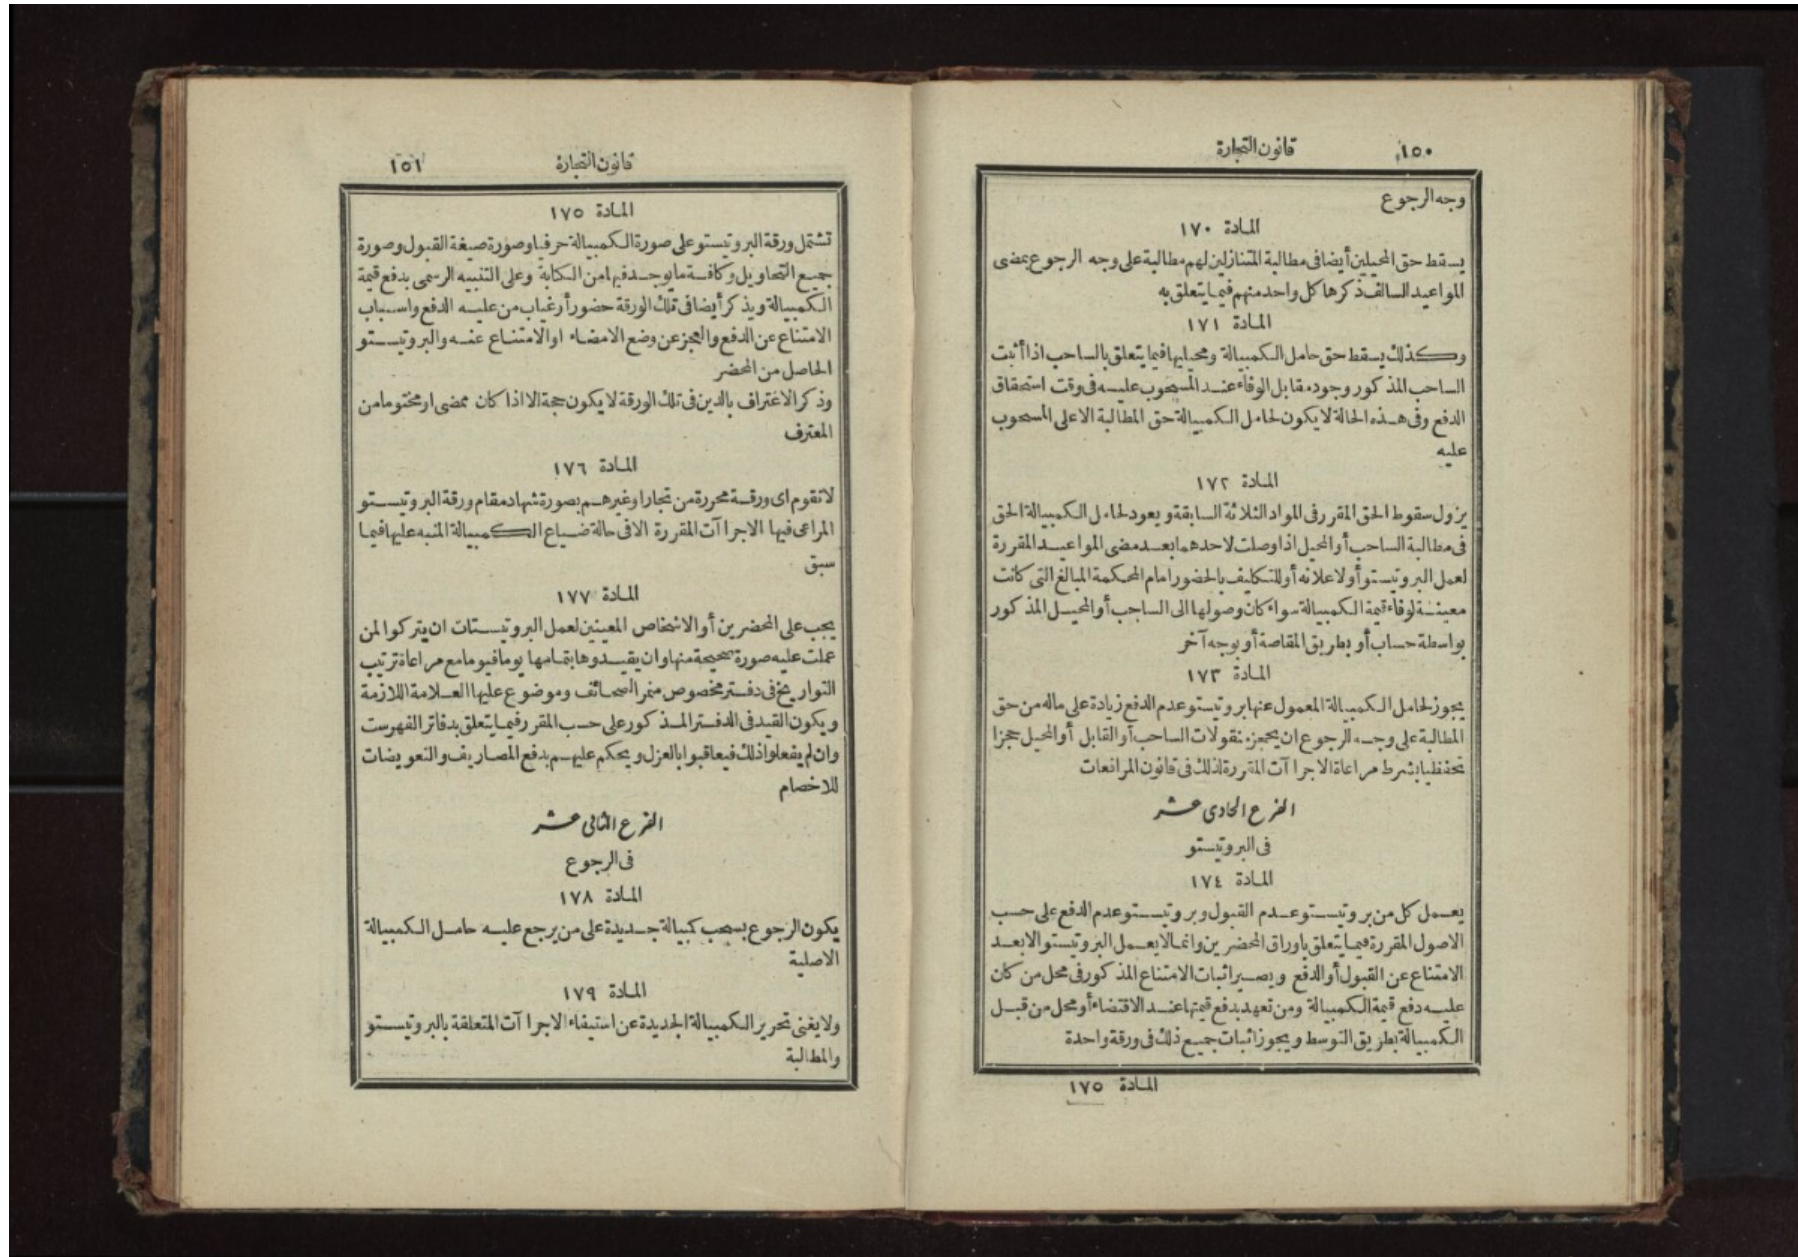 ١٥٠
قانون التجارة
وجه الرجوع
المادة ١٧٠
يسقط حق المحيلين أيضا فى مطالبة المتنازلين لهم مطالبة على وجه الرجوع بمضى
المواعيد السالف ذكرها كل واحد منهم فيما يتعلق به
المادة ١٧١
وكذلك يسقط حق حامل الكمبيالة ومحيليها فيما يتعلق بالساحب اذا أثبت
الساحب المذكور وجود مقابل الوفاء عند المسحوب عليه فى وقت استحقاق
الدفع وفى هذه الحالة لا يكون لحامل الكمبيالة حق المطالبة الا على المسحوب
عليه
المادة ١٧٢
يزول سقوط الحق المقرر فى المواد الثلاثة السابقة ويعود لحامل الكمبيالة الحق
فى مطالبة الساحب أو المحيل اذا وصلت لاحدهما بعد مضى المواعيد المقررة
لعمل البروتيستو أو لاعلانه أو للتكليف بالحضور امام المحكمة المبالغ التى كانت
معينة لوفاء قيمة الكمبيالة سواء كان وصولها الى الساحب أو المحيل المذكور
بواسطة حساب أو بطريق المقاصة أو بوجه آخر
المادة ١٧٣
يجوز لحامل الكمبيالة المعمول عنها بروتيستو عدم الدفع زيادة على ماله من حق
المطالبة على وجه الرجوع ان يحجز منقولات الساحب أو القابل أو المحيل حجزا
تحفظيا بشرط مراعاة الاجراآت المقررة لذلك فى قانون المرافعات
الفرع الحادى عشر
فى البروتيستو
المادة ١٧٤
يعمل كل من بروتيستو عدم القبول وبروتيستو عدم الدفع على حسب
الاصول المقررة فيما يتعلق باوراق المحضرين وانما لا يعمل البروتيستو الا بعد
الامتناع عن القبول أو الدفع ويصير اثبات الامتناع المذكور فى محل من كان
عليه دفع قيمة الكمبيالة ومن تعهد بدفع قيمتها عند الاقتضاء أو محل من قبل
الكمبيالة بطريق التوسط ويجوز اثبات جميع ذلك فى ورقة واحدة
المادة ١٧٥
قانون التجارة
١٥١
المادة ١٧٥
تشتمل ورقة البروتيستو على صورة الكمبيالة حرفيا وصورة صيغة القبول وصورة
جميع التحاويل وكافة ما يوجد فيها من الكتابة وعلى التنبيه الرسمى بدفع قيمة
الكمبيالة ويذكر أيضا فى تلك الورقة حضور أو غياب من عليه الدفع واسباب
الامتناع عن الدفع والعجز عن وضع الامضاء او الامتناع عنه والبروتيستو
الحاصل من المحضر
وذكر الاعتراف بالدين فى تلك الورقة لا يكون حجة الا اذا كان ممضى او مختوما من
المعترف
المادة ١٧٦
لا تقوم اى ورقة محررة من تجار او غيرهم بصورة شهاد مقام ورقة البروتيستو
المراعى فيها الاجراآت المقررة الا فى حالة ضياع الكمبيالة المنبه عليها فيما
سبق
المادة ١٧٧
يجب على المحضرين أو الاشخاص المعينين لعمل البروتيستات ان يتركوا لمن
عملت عليه صورة صحيحة منها وان يقيدوها بتمامها يوما فيوما مع مراعاة ترتيب
التواريخ فى دفتر مخصوص منمر الصحائف وموضوع عليها العلامة اللازمة
ويكون القيد فى الدفتر المذكور على حسب المقرر فيما يتعلق بدفاتر الفهرست
وان لم يفعلوا ذلك فيعاقبوا بالعزل ويحكم عليهم بدفع المصاريف والتعويضات
للاخصام
الفرع الثانى عشر
فى الرجوع
المادة ١٧٨
يكون الرجوع بسحب كمبيالة جديدة على من يرجع عليه حامل الكمبيالة
الاصلية
المادة ١٧٩
ولا يغنى تحرير الكمبيالة الجديدة عن استيفاء الاجراآت المتعلقة بالبروتيستو
والمطالبة